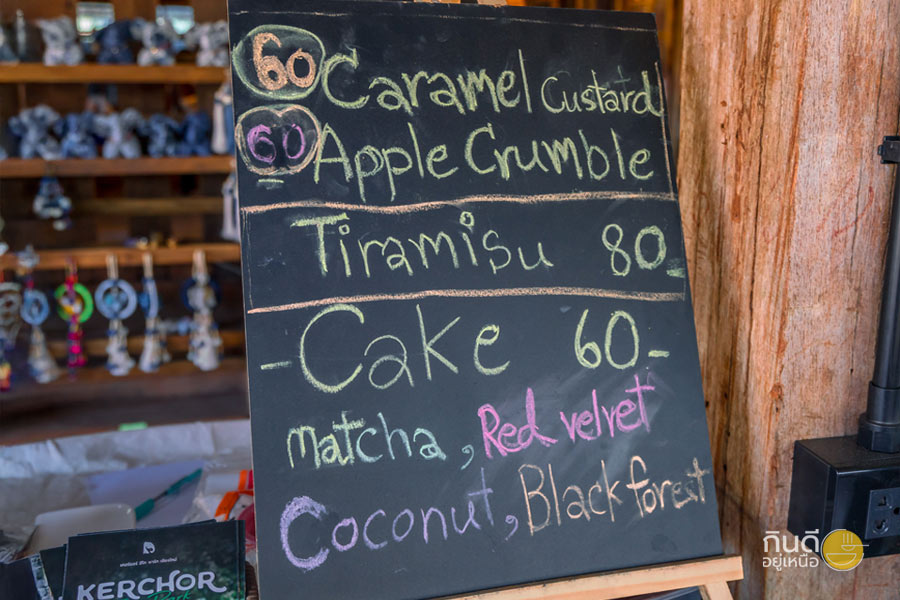 60 Caramel Custard
60 Apple Crumble
Tiramisu 80.-
- Cake 60.-
matcha, Red velvet
Coconut, Black forest
KERCHOR
Park
กินดี
อยู่เหนือ